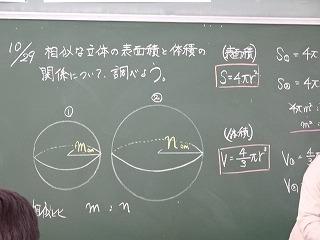 10/29 相似な立体の表面積と体積の
関係について、調べよう。
① ②
m cm n cm
相似比 m : n
(表面積)
S=4πr²
(体積)
V=4/3πr³
S① = 4π
S② = 4π
4πm² :
m² :
V① = 4/3
V②